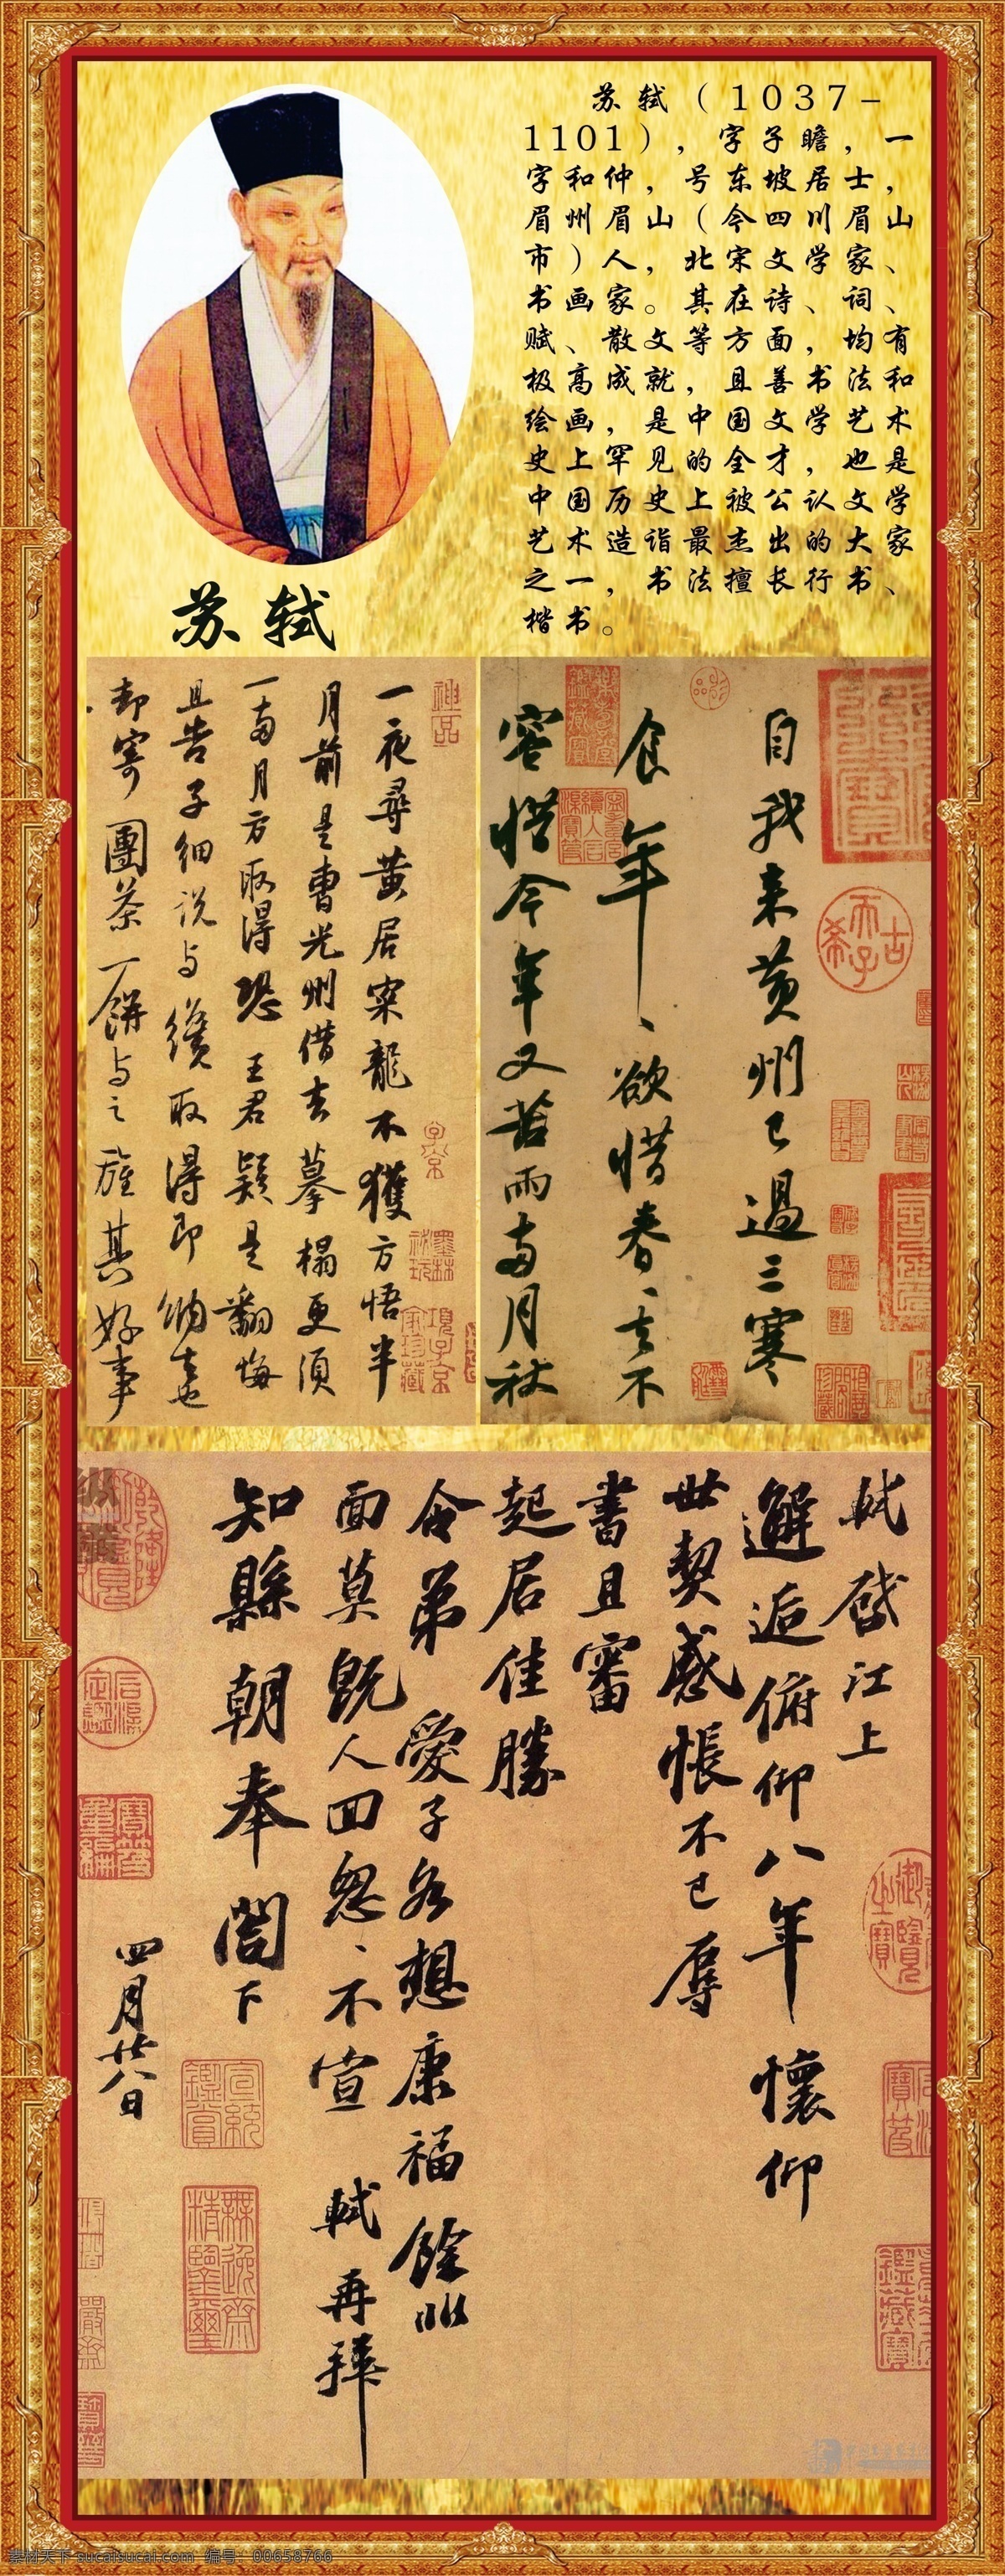 苏轼(1037-
1101),字子瞻,一
字和仲,号东坡居士,
眉州眉山(今四川眉山
市)人,北宋文学家、
书画家。其在诗、词、
赋、散文等方面,均有
极高成就,且善书法和
绘画,是中国文学艺术
史上罕见的全才,也是
中国历史上被公认文学
艺术造诣最杰出的大家
之一,书法擅长行书、
楷书。
苏轼
自我来黄州已過三寒
食年、欲惜春、去不
容惜今年又苦雨两月秋
一夜尋黄居寀龍不獲方悟半
月前是曹光州借去摹榻更須
一两月方取得恐王君疑是翻悔
且告子细说与纔取得即纳去也
却寄團茶一餅与之旌其好事
神品
軾啓江上
邂逅俯仰八年懷仰
世契感悵不已辱
書且審
起居佳勝
令弟愛子各想康福餘非
面莫既人回怱、不宣 軾再拜
知縣朝奉閤下
四月廿八日
素材天下 sucaisucai.com 编号:00658766